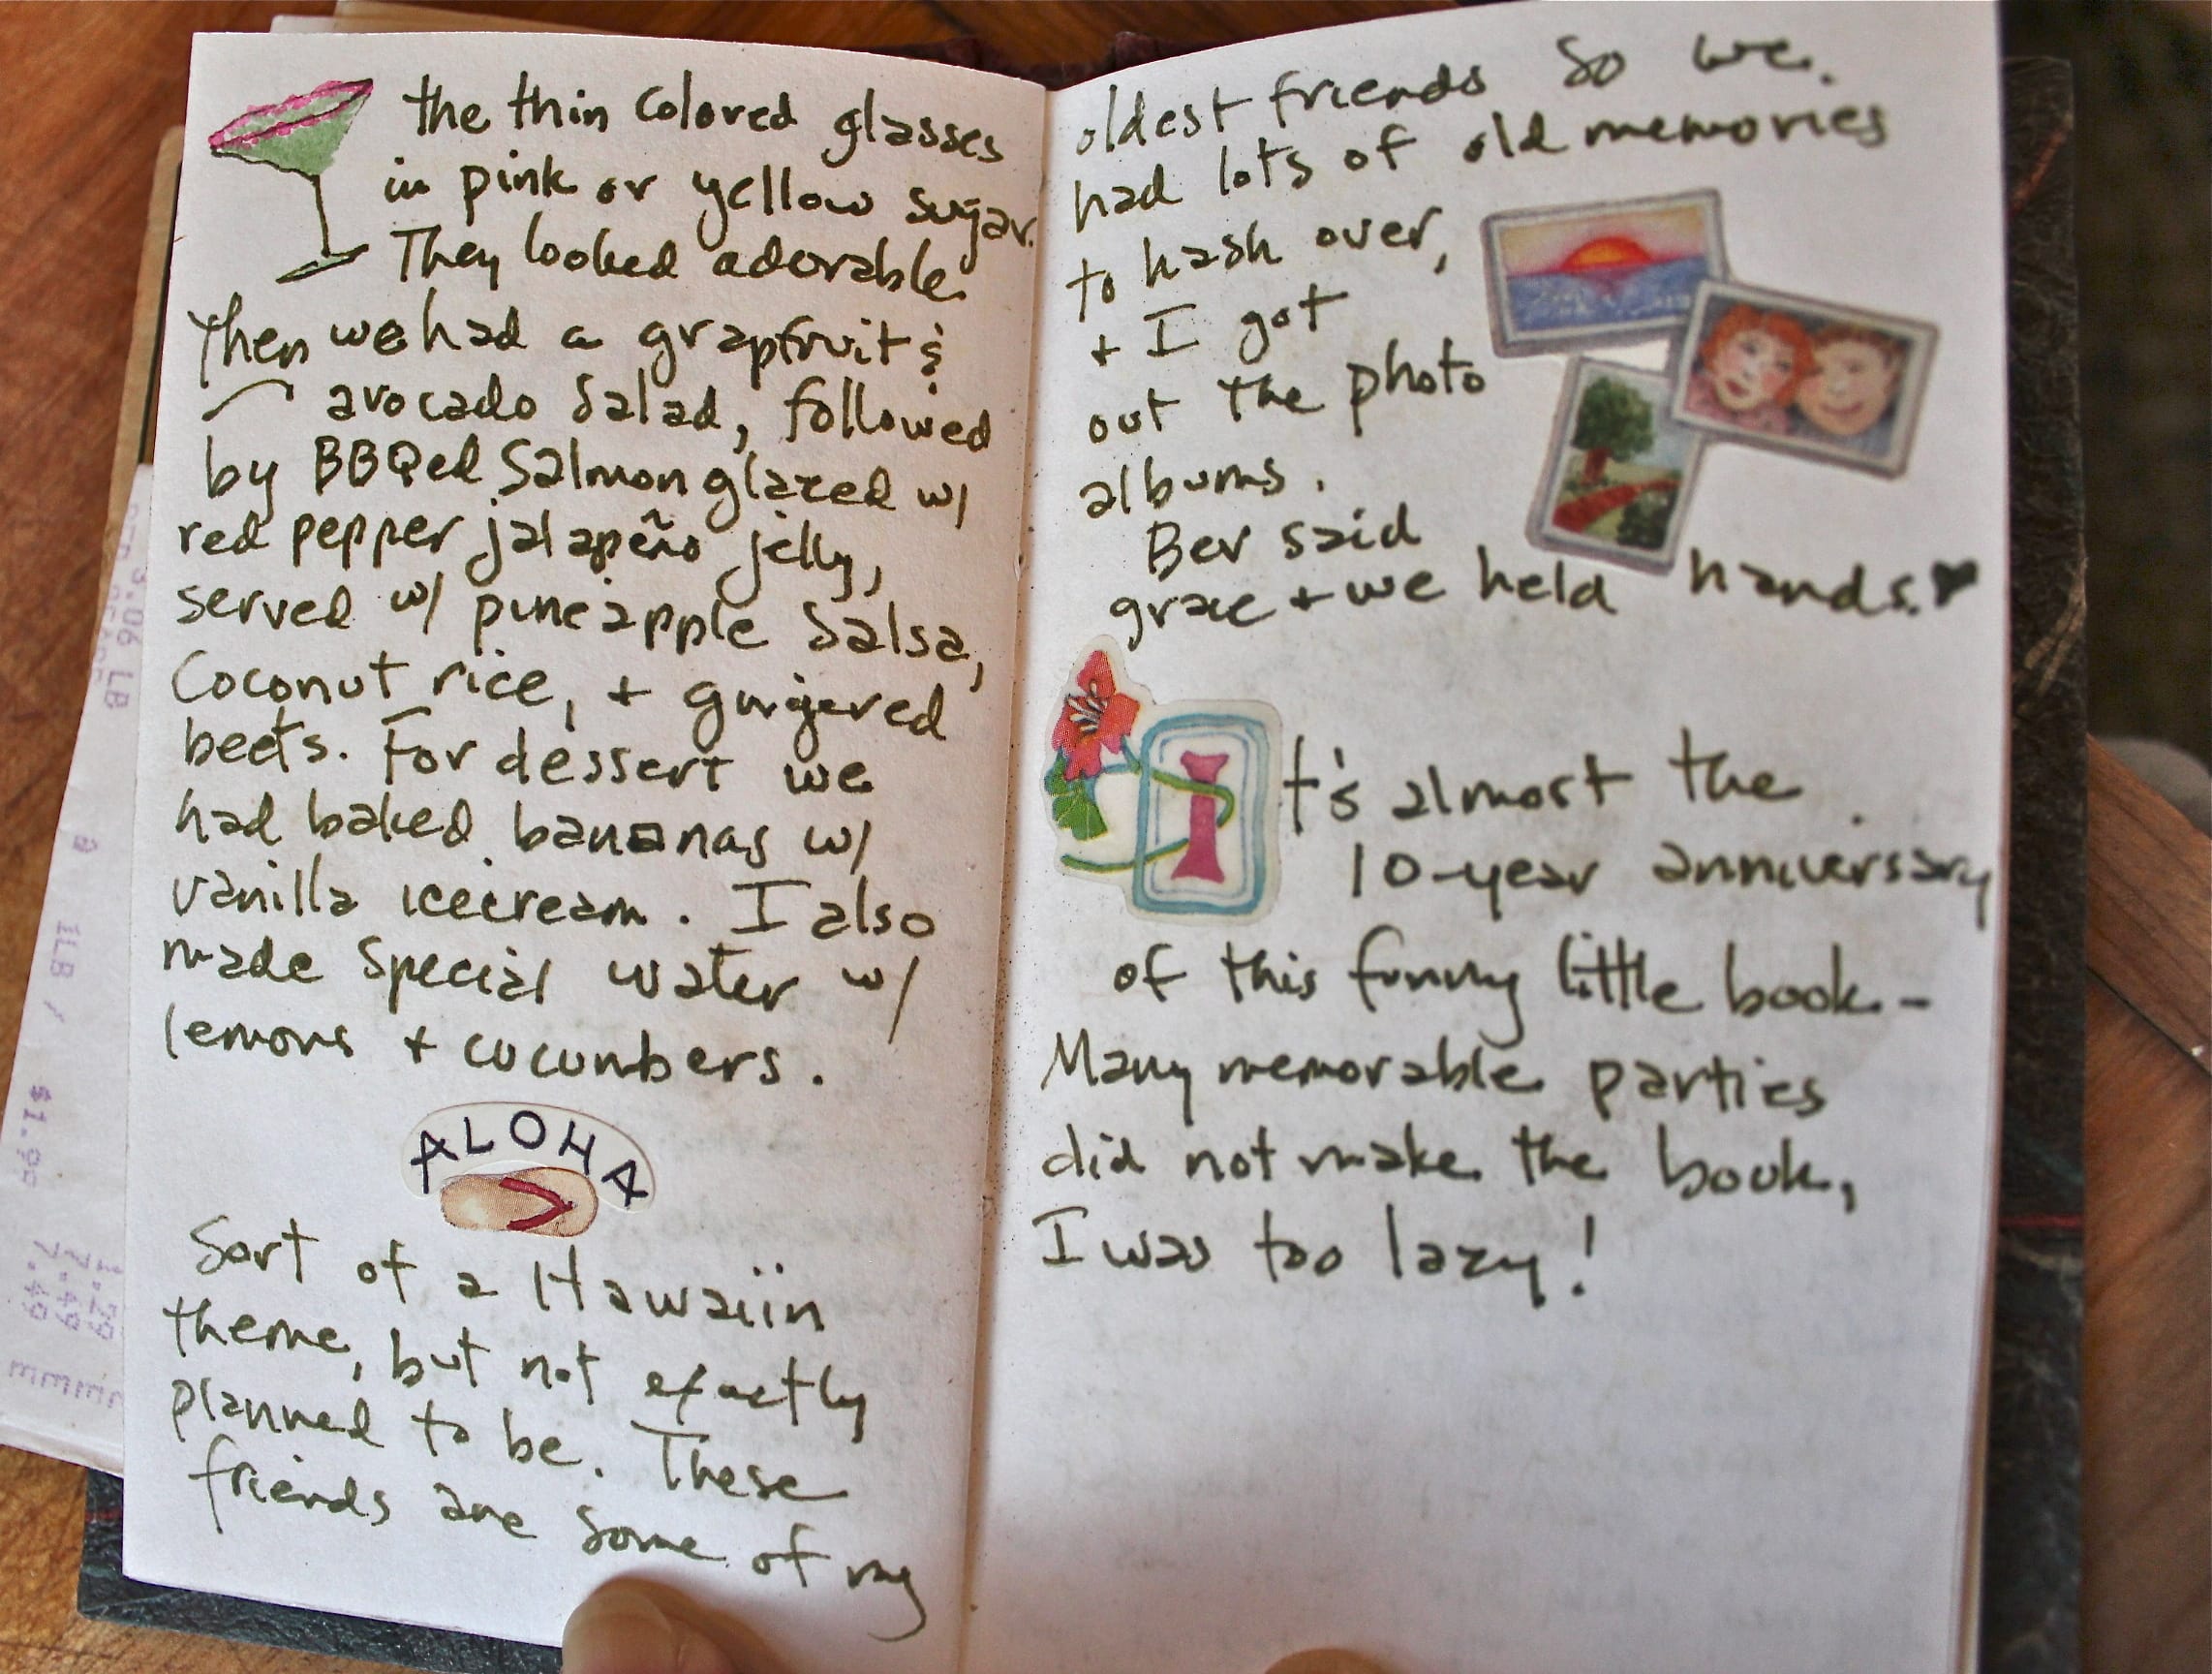 the thin colored glasses
in pink or yellow sugar.
They looked adorable.
Then we had a grapfruit &
avocado salad, followed
by BBQed Salmon glazed w/
red pepper jalapeño jelly,
served w/ pineapple salsa,
Coconut rice, + gingered
beets. For dessert we
had baked bananas w/
vanilla icecream. I also
made special water w/
lemons + cucumbers.
ALOHA
Sort of a Hawaiin
theme, but not exactly
planned to be. These
friends are some of my
oldest friends so we
had lots of old memories
to hash over,
+ I got
out the photo
albums.
Bev said
grace + we held hands. ♥
It's almost the
10-year anniversary
of this funny little book -
Many memorable parties
did not make the book,
I was too lazy!
3.06 LB
1LB /
$1.99
1.29
7.49
7.49